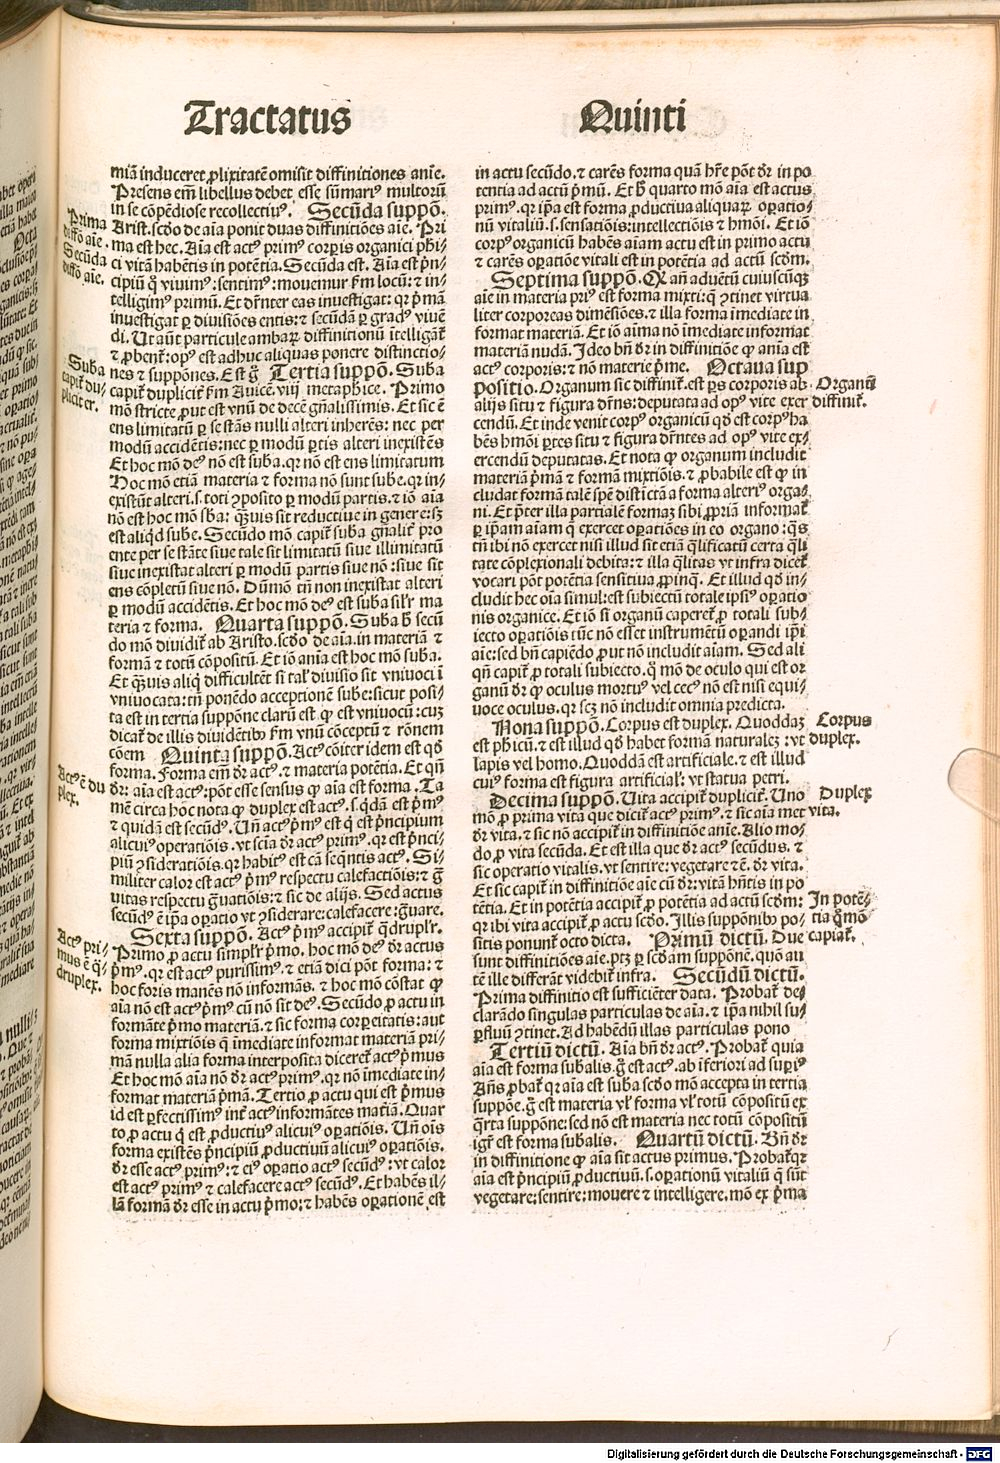 Tractatus Quinti
miā induceret ꝓlixitatē omisit diffinitiones anīe.
Presens em̄ libellus debet esse sūmariꝰ multorū
in se cōpēdiose recollectiuꝰ. Secūda suppō.
Arist. scḋo de aīa ponit duas diffinitiōes aīe. Pri
ma est hec. Aīa est actꝰ primꝰ corꝑis organici phi-
ci vitā habētis in potētia. Secūda est. Aīa est pͥn-
cipiū qͦ viuimꝰ: sentimꝰ: mouemur ẜm locū: ⁊ in-
telligimꝰ primū. Et dr̄nter eas inuestigat: qꝛ pͥmā
inuestigat ꝑ diuisiōes entis: ⁊ secūdā ꝑ gradꝰ viuē
di. Ut aūt particule ambaꝝ diffinitionū ītelligāt᷑
⁊ ꝓbent᷑: opꝰ est adhuc aliquas ponere distinctio-
nes ⁊ suppōnes. Est g̊ Tertia suppō. Suba
capit᷑ duplicit᷑ ẜm Auicē. viij metaphice. Primo
mō stricte ꝓut est vnū de decē gn̄alissimis. Et sic ē
ens limitatū ꝑ se stās nulli alteri inherēs: nec per
modū accidētis: nec ꝑ modū ꝑtis alteri inexistēs
Et hoc mō deꝰ nō est suba. qꝛ nō est ens limitatum
Hoc mō etiā materia ⁊ forma nō sunt sube. qꝛ in-
existūt alteri. s. toti ꝯposito ꝑ modum partis. ⁊ iō aīa
nō est hoc mō sba: q̄ꝫuis sit reductiue in genere: sꝫ
est aliqd sube. Secūdo mō capit᷑ suba gn̄alit᷑ pro
ente per se stāte siue tale sit limitatū siue illimitatū
siue inexistat alteri ꝑ modū partis siue nō: siue sit
ens cōpletū siue nō. Dūmō tn̄ non inexistat alteri
ꝑ modū accidētis. Et hoc mō deꝰ est suba sil'r ma
teria ⁊ forma. Quarta suppō. Suba h̄ secū
do mō diuidit᷑ ab Aristo. scḋo de aīa. in materiā ⁊
formā ⁊ totū cōpositū. Et iō anīa est hoc mō suba.
Et q̄ꝫuis aliq̄ difficultēt si tal' diuisio sit vniuoci ī
vniuocata: tn̄ ponēdo acceptionē sube: sicut posi-
ta est in tertia suppōne clarū est ꝙ est vniuocū: cuꝫ
dicat᷑ de illis diuidētibꝰ ẜm vnū cōceptū ⁊ rōnem
cōem Quinta suppō. Actꝰ cōiter idem est qḋ
forma. Forma em̄ dr̄ actꝰ. ⁊ materia potētia. Et qn̄
dr̄: aīa est actꝰ: pōt esse sensus ꝙ aīa est forma. Ta
mē circa hoc nota ꝙ duplex est actꝰ. s. qͥdā est pͥmꝰ
⁊ quidā est secūdꝰ. Un̄ actꝰ pͥmꝰ est qͥ est pͥncipium
alicuiꝰ operatiōis. vt scīa dr̄ actꝰ primꝰ. qꝛ est pͥnci-
piū ꝯsideratiōis. qꝛ habitꝰ est cā seqn̄tis actꝰ. Si-
militer calor est actꝰ pͥmꝰ respectu calefactiōis: ⁊ g̊
uitas respectu g̊uatiōis: ⁊ sic de alijs. Sed actus
secūdꝰ ē ip̄a oꝑatio vt ꝯsiderare: calefacere: g̊uare.
Sexta suppō. Actꝰ pͥmꝰ accipit᷑ q̄druplr'.
Primo ꝓ actu simplr' pͥmo. hoc mō deꝰ dr̄ actus
pͥmꝰ. qꝛ est actꝰ purissimꝰ. ⁊ etiā dici pōt forma: ⁊
hoc foris manēs nō informās. ⁊ hoc mō cōstat ꝙ
aīa nō est actꝰ pͥmꝰ cū nō sit deꝰ. Secūdo ꝓ actu in
formāte pͥmo materiā. ⁊ sic forma corꝑeitatis: aut
forma mixtiōis q̄ imediate informat materiā pri-
mā nulla alia forma interposita diceret᷑ actꝰ pͥmus
Et hoc mō aīa nō dr̄ actꝰ primꝰ. qꝛ nō īmediate in-
format materiā pͥmā. Tertio ꝓ actu qui est pͥmus
id est ꝑfectissimꝰ int᷑ actꝰ informātes mat̄iā. Quar
to ꝓ actu qͥ est ꝓductiuꝰ alicuiꝰ oꝑatiōis. Un̄ oīs
forma existēs pͥncipiū ꝓductiuū alicuiꝰ oꝑatiōis.
dr̄ esse actꝰ primꝰ: ⁊ eiꝰ oꝑatio actꝰ secūdꝰ: vt calor
est actꝰ primꝰ ⁊ calefacere actꝰ secūdꝰ. Et habēs il-
lā formā dr̄ esse in actu pͥmo: ⁊ habēs oꝑatione ē est
Prima
diffō aīe.
Secūda
diffō aīe.
Suba
capit᷑ du-
pliciter.
Actꝰ ē du
plex.
Actꝰ pri-
mus ē q̄-
druplex.
in actu secūdo. ⁊ carēs forma quā hr̄e pōt dr̄ in po
tentia ad actū pͥmū. Et h̄ quarto mō aīa est actus
primꝰ. qꝛ ip̄a est forma ꝓductiua aliquaꝝ oꝑatio-
nū vitaliū. s. sensatiōis: intellectiōis ⁊ hmōi. Et iō
corpꝰ organicū habēs aīam actu est in primo actu
⁊ carēs oꝑatiōe vitali est in potētia ad actū scḋm.
Septima suppō. Qꝙ an̄ aduētū cuiuscūqꝫ
aīe in materia priꝰ est forma mixti: q̄ ꝯtinet virtua
liter corporeas dimēsiōes. ⁊ illa forma īmediate in
format materiā. Et iō aīma nō īmediate informat
materiā nudā. Ideo bn̄ dr̄ in diffinitiōe ꝙ anīa est
actꝰ corporis: ⁊ nō materie pͥme. Octaua sup
positio. Organum sic diffinit᷑. est ꝑs corporis ab
alijs situ ⁊ figura dr̄ns: deputata ad opꝰ vite exer
cendū. Et inde venit corpꝰ organicū qḋ est corpꝰ ha
bēs hmōi ꝑtes situ ⁊ figura dr̄ntes ad opꝰ vite ex-
ercendū deputatas. Et nota ꝙ organum includit
materiā pͥmā ⁊ formā mixtiōis. ⁊ ꝓbabile est ꝙ in
cludat formā talē spē distīctā a forma alteriꝰ orga-
ni. Et pͥter illa partialē formaꝫ sibi ꝓpriā informat᷑
ꝑ ip̄am aīam q̄ exercet oꝑatiōes in eo organo: qͣs
tn̄ ibi nō exercet nisi illud sit etiā q̄lificatū certa q̄li
tate cōplexionali debita: ⁊ illa q̄litas vt infra dicet᷑
vocari pōt potētia sensitiua ꝓpinq̄. Et illud qḋ in-
cludit hec oīa simul: est subiectū totale ip̄siꝰ oꝑatio
nis organice. Et iō si organū caperet᷑ ꝓ totali sub-
iecto oꝑatiōis tūc nō esset instrumētū oꝑandi ip̄i
aīe: sed bn̄ capiēdo ꝓut nō includit aīam. Sed ali
qn̄ capit᷑ ꝓ totali subiecto. qͦ mō de oculo qui est or
ganū dr̄ ꝙ oculus mortuꝰ vel cecꝰ nō est nisi equi-
uoce oculus. qꝛ scꝫ nō includit omnia predicta.
Nona suppō. Corpus est duplex. Quoddaꝫ
est phīcū. ⁊ est illud qḋ habet formā naturaleꝫ: vt
lapis vel homo. Quoddā est artificiale. ⁊ est illud
cuiꝰ forma est figura artificial': vt statua petri.
Decima suppō. Uita accipit᷑ duplicit᷑. Uno
mō ꝓ prima vita que dicit᷑ actꝰ primꝰ. ⁊ sic aīa met
dr̄ vita. ⁊ sic nō accipit᷑ in diffinitiōe anīe. Alio mo-
do ꝓ vita secūda. Et est illa que dr̄ actꝰ secūdus. ⁊
sic operatio vitalis. vt sentire: vegetare ⁊c̄. dr̄ vita.
Et sic capit᷑ in diffinitiōe aīe cū dr̄: vitā hn̄tis in po
tētia. Et in potētia accipit᷑ ꝓ potētia ad actū scḋm:
qꝛ ibi vita accipit᷑ ꝓ actu scḋo. Illis suppōnibꝰ po-
sitis ponunt᷑ octo dicta. Primū dictū. Due
sunt diffinitiōes aīe. ptꝫ ꝑ scḋam suppōnē. quō au
tē ille differāt videbit᷑ infra. Secūdū dictū.
Prima diffinitio est sufficiēter data. Probat᷑ de-
clarādo singulas particulas de aīa. ⁊ ip̄a nihil su-
ꝑfluū ꝯtinet. Ad habēdū illas particulas pono
Tertiū dictū. Aīa bn̄ dr̄ actꝰ. Probat᷑ quia
aīa est forma subalis. g̊ est actꝰ. ab īferiori ad suꝑiꝰ
An̄s ꝓbat᷑ qꝛ aīa est suba scḋo mō accepta in tertia
suppōe. g̊ est materia vl' forma vl' totū cōpositū ex
q̄rta suppōne: sed nō est materia nec totū cōpositū
igr̄ est forma subalis. Quartū dictū. Bn̄ dr̄
in diffinitione ꝙ aīa sit actus primus. Probat᷑ qꝛ
aīa est pͥncipiū ꝓductiuū. s. oꝑationū vitaliū q̄ sūt
vegetare: sentire: mouere ⁊ intelligere. mō ex pͥma
Organū
diffinit᷑.
Corpus
duplex.
Duplex
vita.
In potē-
tia qͣ mō
capiat᷑.
Digitalisierung gefördert durch die Deutsche Forschungsgemeinschaft - DFG